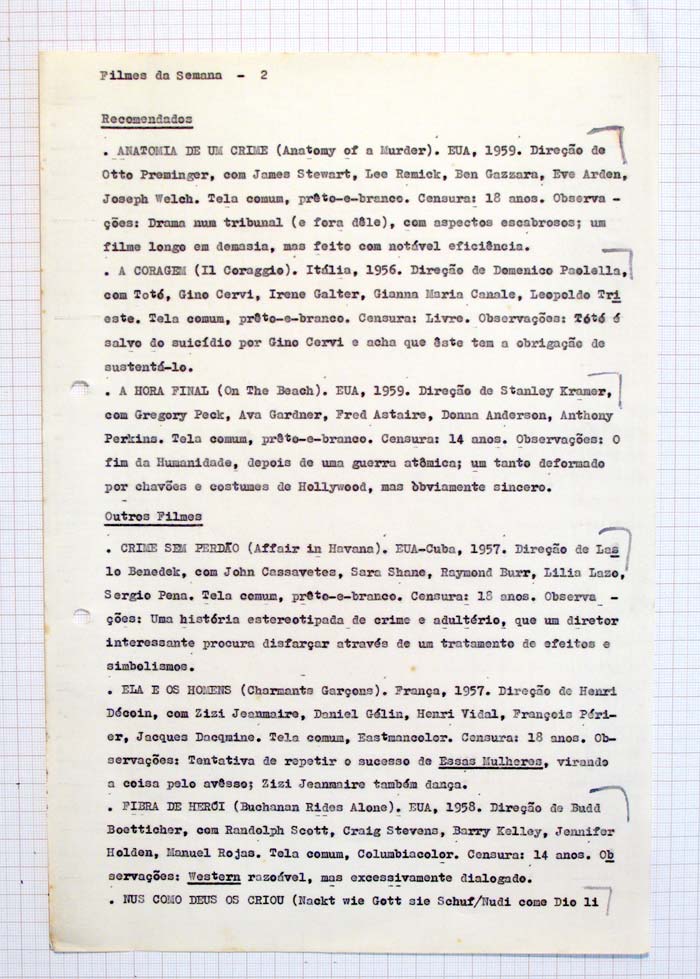 Filmes da Semana - 2
Recomendados
. ANATOMIA DE UM CRIME (Anatomy of a Murder). EUA, 1959. Direção de
Otto Preminger, com James Stewart, Lee Remick, Ben Gazzara, Eve Arden,
Joseph Welch. Tela comum, prêto-e-branco. Censura: 18 anos. Observa -
ções: Drama num tribunal (e fora dêle), com aspectos escabrosos; um
filme longo em demasia, mas feito com notável eficiência.
. A CORAGEM (Il Coraggio). Itália, 1956. Direção de Domenico Paolella,
com Totó, Gino Cervi, Irene Galter, Gianna Maria Canale, Leopoldo Tri
este. Tela comum, prêto-e-branco. Censura: Livre. Observações: Tótó é
salvo do suicídio por Gino Cervi e acha que êste tem a obrigação de
sustentá-lo.
. A HORA FINAL (On The Beach). EUA, 1959. Direção de Stanley Kramer,
com Gregory Peck, Ava Gardner, Fred Astaire, Donna Anderson, Anthony
Perkins. Tela comum, prêto-e-branco. Censura: 14 anos. Observações: O
fim da Humanidade, depois de uma guerra atômica; um tanto deformado
por chavões e costumes de Hollywood, mas òbviamente sincero.
Outros Filmes
. CRIME SEM PERDÃO (Affair in Havana). EUA-Cuba, 1957. Direção de Las
lo Benedek, com John Cassavetes, Sara Shane, Raymond Burr, Lilia Lazo,
Sergio Pena. Tela comum, prêto-e-branco. Censura: 18 anos. Observa -
ções: Uma história estereotipada de crime e adultério, que um diretor
interessante procura disfarçar através de um tratamento de efeitos e
simbolismos.
. ELA E OS HOMENS (Charmants Garçons). França, 1957. Direção de Henri
Décoin, com Zizi Jeanmaire, Daniel Gélin, Henri Vidal, François Péri-
er, Jacques Dacqmine. Tela comum, Eastmancolor. Censura: 18 anos. Ob-
servações: Tentativa de repetir o sucesso de Essas Mulheres, virando
a coisa pelo avêsso; Zizi Jeanmaire também dança.
. FIBRA DE HERÓI (Buchanan Rides Alone). EUA, 1958. Direção de Budd
Boetticher, com Randolph Scott, Craig Stevens, Barry Kelley, Jennifer
Holden, Manuel Rojas. Tela comum, Columbiacolor. Censura: 14 anos. Ob
servações: Western razoável, mas excessivamente dialogado.
. NUS COMO DEUS OS CRIOU (Nackt wie Gott sie Schuf/Nudi come Dio li